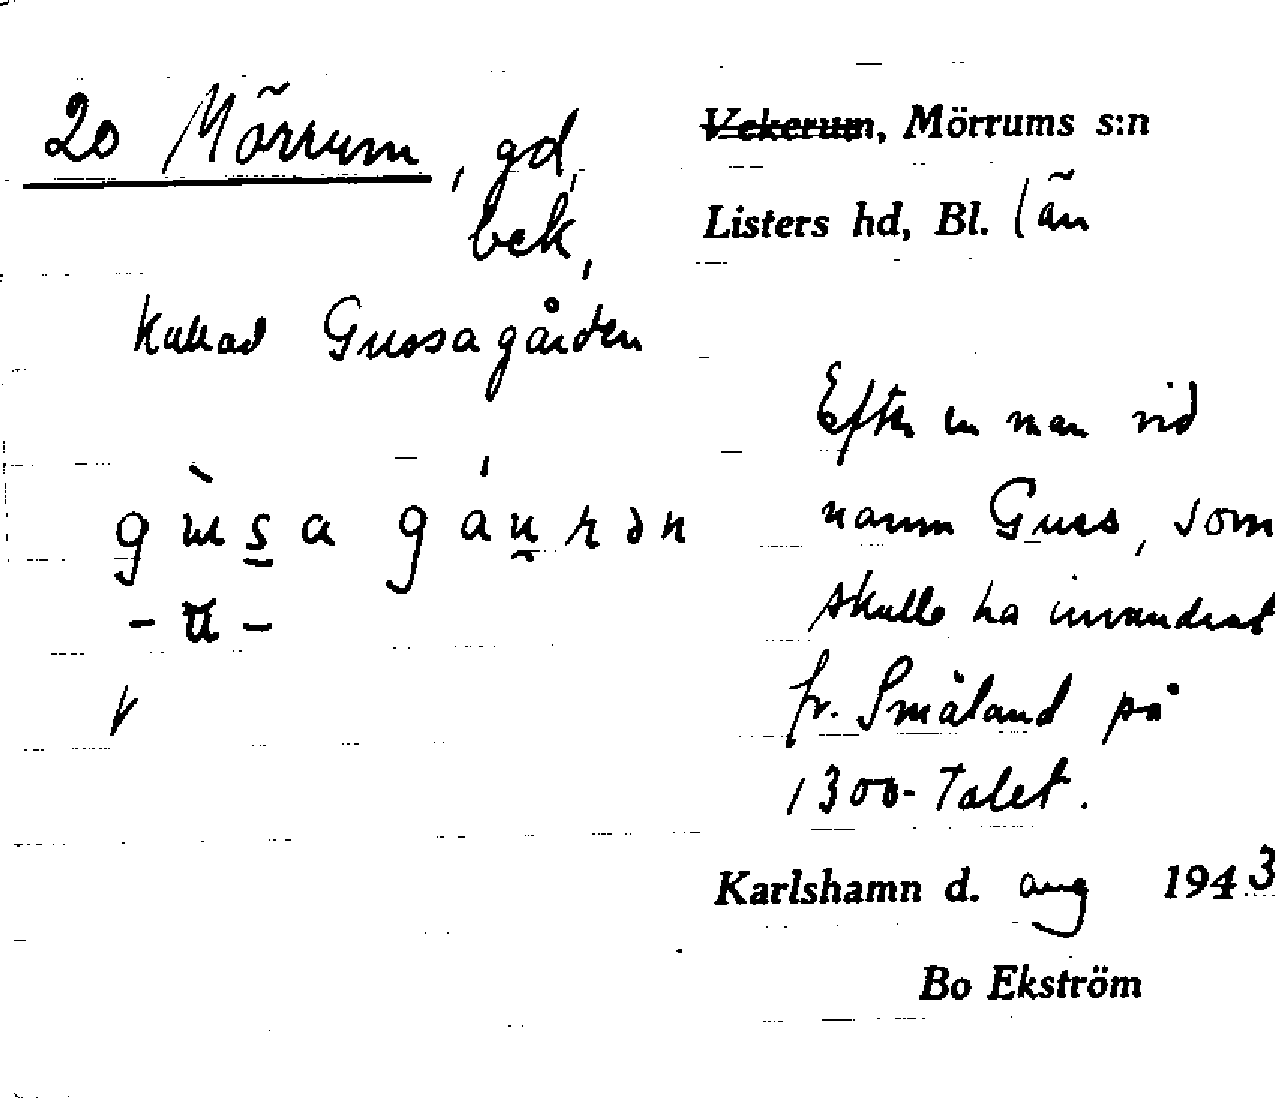 20 Mörrum, gd,
bek,
kallad Gussagården
Vekerum, Mörrums s:n
Listers hd, Bl. län
Efter en man vid
namn Guss, som
skulle ha invandrat
fr. Småland på
1300-Talet.
Karlshamn d. aug 1943
Bo Ekström